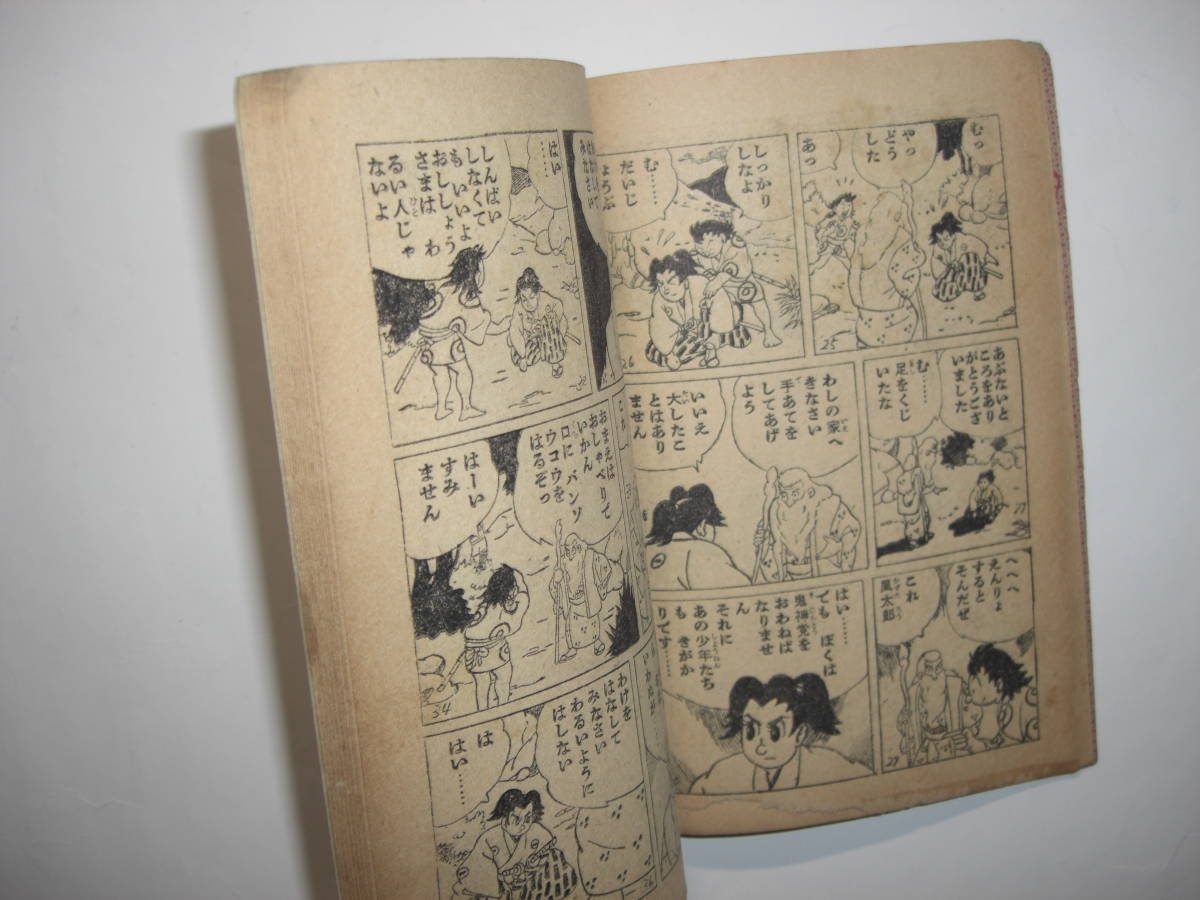 むっ
やっ
どう
した
あっ
25
しっかり
しなよ
む……
だいじ
ょうぶ
26
あぶないと
ころをあり
がとうござ
いました
む……
足をくじ
いたな
わしの家へ
きなさい
手あてを
してあげ
よう
いいえ
大したこ
とはあり
ません
へへへ
えんりょ
すると
そんだぜ
これ
風太郎
はい……
でも ぼくは
鬼神党を
おわねば
なりませ
ん
それに
あの少年たち
も きがか
りです……
はい
……
しんぱい
しなくて
も いいよ
おししょう
さまは わ
るい人じゃ
ないよ
おまえは
おしゃべりで
いかん
口に バンソ
ウコウを
はるぞっ
はーい
すみ
ません
34
わけを
はなして
みなさい
わるいように
はしない
は
はい……